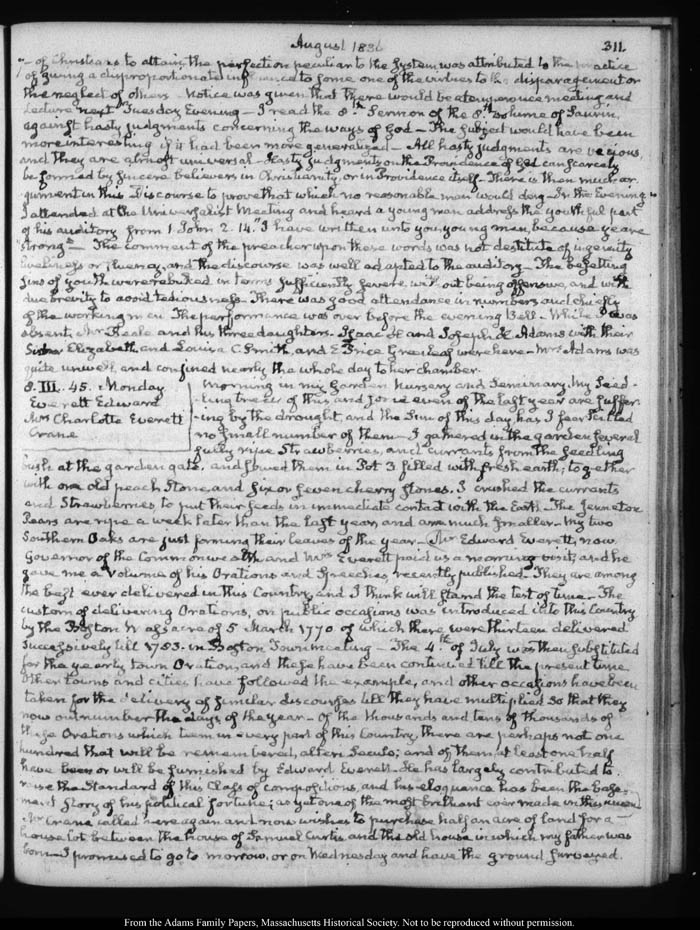 August 1836 311
— of Christians to attain the perfection peculiar to the System was attributed to the practice
of giving a disproportionate influence to some one of the virtues to the disparagement or
the neglect of others. Notice was given that there would be a temperance meeting and
Lecture next Tuesday Evening — I read the 8th Sermon of the 8th volume of Saurin,
against hasty judgments concerning the ways of God — The subject would have been
more interesting if it had been more generalized — All hasty judgments are vicious,
and they are almost universal — Hasty judgments on the Providence of God can scarcely
be formed by sincere believers in Christianity, or in Providence itself — There is then much ar-
gument in this Discourse to prove that which no reasonable man would deny — In the Evening
I attended at the Universalist Meeting and heard a young man address the youthful part
of his auditory from 1. John 2. 14. I have written unto you, young men, because ye are
strong — The comment of the preacher upon these words was not destitute of ingenuity
liveliness or fluency, and the discourse was well adapted to the auditory — The besetting
sins of youth were rebuked in terms sufficiently severe without being offensive, and with
due brevity to avoid tediousness — There was good attendance in numbers and chiefly
of the working men. The performance was over before the evening Bell — While I was
absent, Mr Beale and his three daughters — Isaac H and Joseph H Adams with their
Sister Elizabeth, and Louisa C. Smith, and E Price Greenleaf were here — Mrs Adams was
quite unwell and confined nearly the whole day to her chamber.
8. III. 45. Monday
Everett Edward
Mrs Charlotte Everett
Crane
Morning in my Garden Nursery and Seminary. My Seed-
ling trees of this and some even of the last year are suffer-
ing by the drought, and the Sun of this day has I fear killed
no small number of them — I gathered in the garden several
fully ripe Strawberries, and currants from the seedling
bush at the garden gate, and sowed them in Pot 3 filled with fresh earth; together
with one old peach Stone, and six or seven cherry stones. I crushed the currants
and Strawberries to put their seeds in immediate contact with the Earth. The
Pears are ripe a week later than the last year, and are much smaller — My two
Southern Oaks are just forming their leaves of the year — Mr Edward Everett, now
Governor of the Commonwealth and Mrs Everett paid us a morning visit, and he
gave me a Volume of his Orations and Speeches, recently published — They are among
the best ever delivered in this Country, and I think will stand the test of time — The
custom of delivering Orations, on public occasions was introduced into this Country
by the Boston Massacre of 5 March 1770 of which there were thirteen delivered
successively till 1783. in Boston Town meeting — The 4th of July was then substituted
for the yearly town Oration, and these have been continued till the present time
Other towns and cities have followed the example, and other occasions have been
taken for the delivery of similar discourses till they have multiplied so that they
now outnumber the days of the year — Of the thousands and tens of thousands of
these Orations which teem in every part of this Country, there are perhaps not one
hundred that will be remembered, alteri Saeculo; and of them at least one half
have been or will be furnished by Edward Everett. He has largely contributed to
raise the Standard of this Class of compositions, and his eloquence has been the base-
ment story of his political fortune; as yet one of the most brilliant ever made in this Union
Mr Crane called here again and now wishes to purchase half an acre of land for a
house lot between the house of Samuel Curtis, and the old house in which my father was
born — I promised to go to morrow, or on Wednesday and have the ground surveyed.
From the Adams Family Papers, Massachusetts Historical Society. Not to be reproduced without permission.